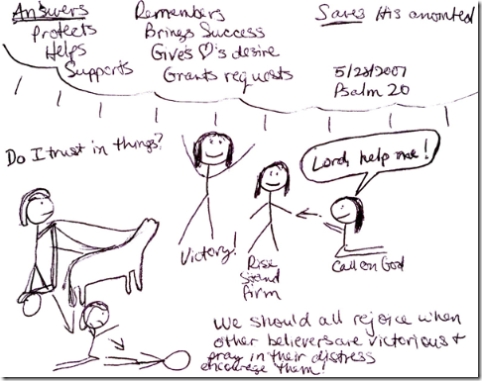 Answers
Protects
Helps
Supports
Remembers
Brings Success
Gives ♡'s desire
Grants requests
Saves His anointed
5/28/2007
Psalm 20
Do I trust in things?
Victory!
Rise
Stand
firm
Lord, help me!
Call on God
We should all rejoice when
other believers are victorious &
pray in their distress
encourage them!